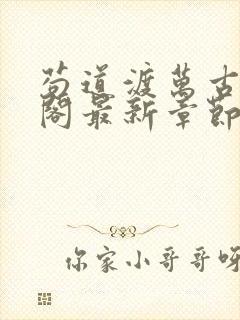 苟道渡萬古
閣最新章節
你家小哥哥呀